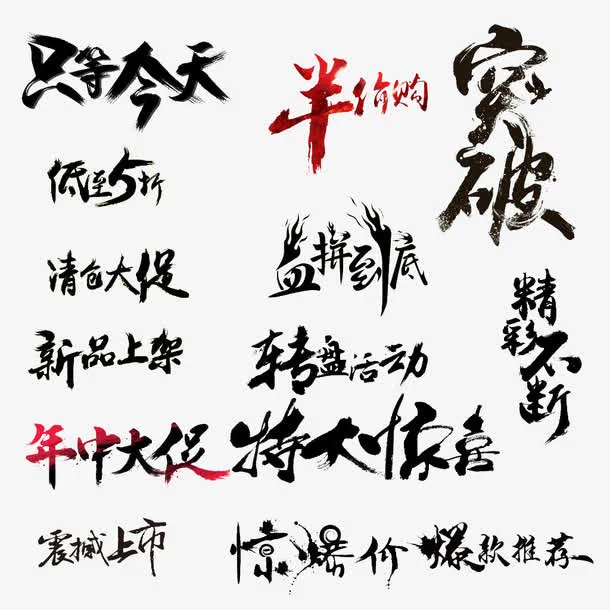 只等今天
半价购
突破
低至5折
清仓大促
血拼到底
精彩不断
新品上架
转盘活动
年中大促
特大惊喜
震撼上市
惊爆价
爆款推荐